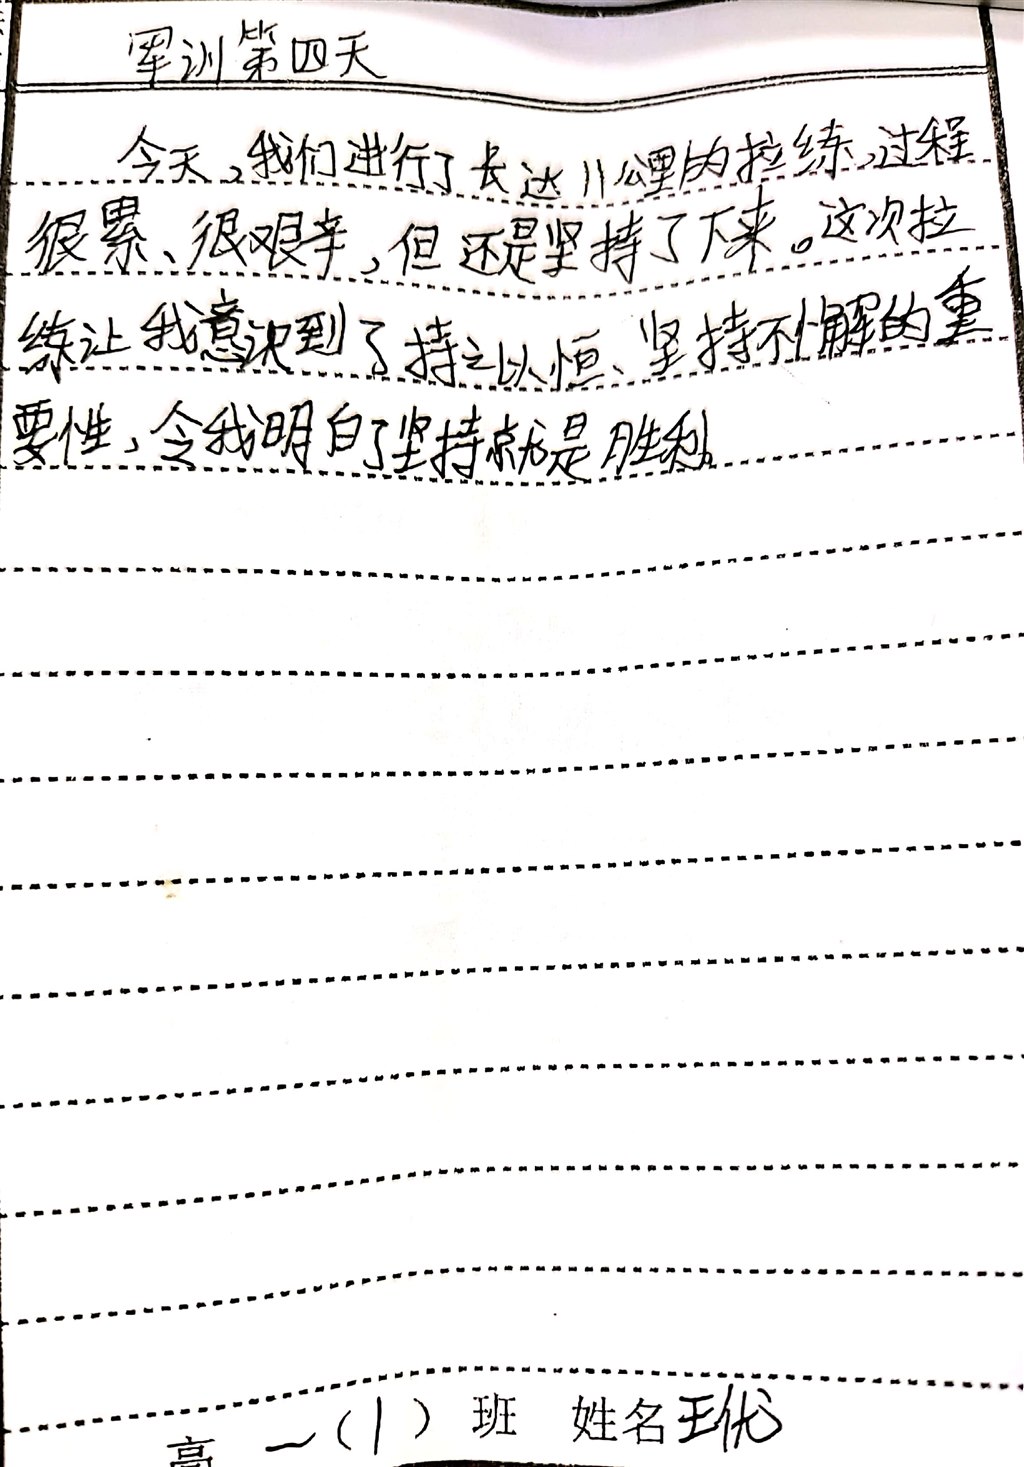 军训第四天
今天,我们进行了长达11公里的拉练,过程
很累、很艰辛,但还是坚持了下来。这次拉
练让我意识到了持之以恒、坚持不懈的重
要性,令我明白了坚持就是胜利。
高一(1)班 姓名王优